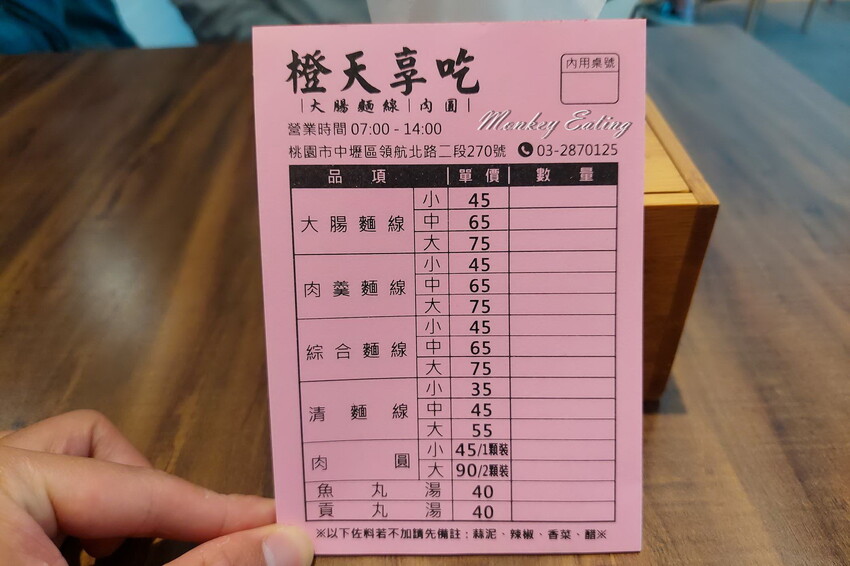 橙天享吃
內用桌號
|大腸麵線|肉圓|
Monkey Eating
營業時間 07:00 - 14:00
桃園市中壢區領航北路二段270號 03-2870125
品項 單價 數量
大腸麵線 小 45
中 65
大 75
肉羹麵線 小 45
中 65
大 75
綜合麵線 小 45
中 65
大 75
清麵線 小 35
中 45
大 55
肉圓 小 45/1顆裝
大 90/2顆裝
魚丸湯 40
貢丸湯 40
※以下佐料若不加請先備註：蒜泥、辣椒、香菜、醋※